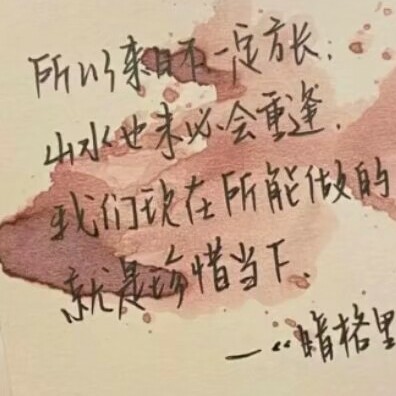 所以来日不一定方长，
山水也未必会重逢，
我们现在所能做的
就是珍惜当下.
一“暗格里